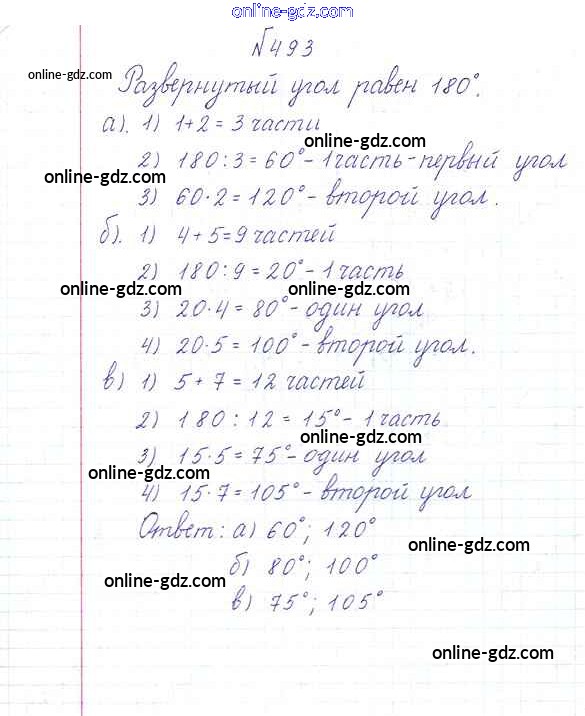 online-gdz.com
№493
online-gdz.com
Развернутый угол равен 180°.
а). 1) 1+2=3 части
online-gdz.com
2) 180:3=60°-1 часть-первый угол
online-gdz.com
3) 60·2=120°-второй угол.
б). 1) 4+5=9 частей
2) 180:9=20°-1 часть
online-gdz.com
online-gdz.com
3) 20·4=80°-один угол
4) 20·5=100°-второй угол.
в) 1) 5+7=12 частей
2) 180:12=15°-1 часть
online-gdz.com
3) 15·5=75°-один угол
online-gdz.com
4) 15·7=105°-второй угол
Ответ: а) 60°; 120°
online-gdz.com
б) 80°; 100°
online-gdz.com
в) 75°; 105°
online-gdz.com